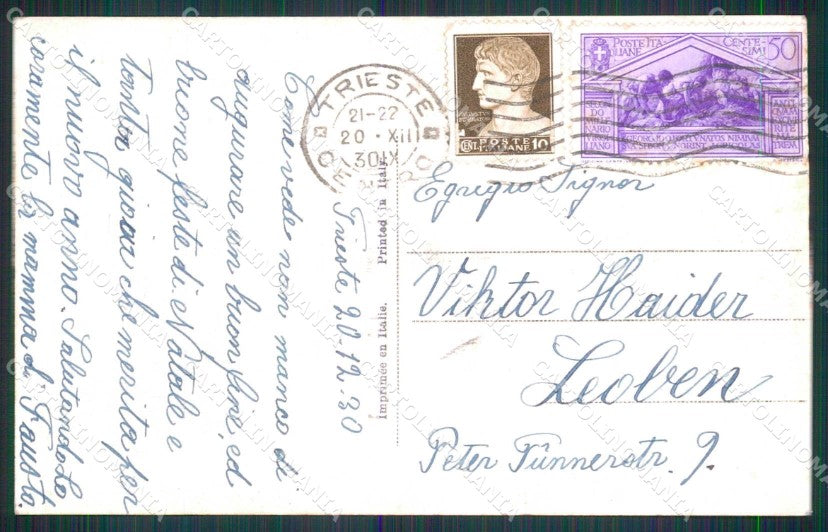 Trieste 20-12-30
Come vede non manco di
augurare un buon fine ed
buone feste di Natale e
tante gioie che merita per
il nuovo anno. Salutandola
caramente la mamma di Fausto.
Imprimée en Italie. Printed in Italy
TRIESTE
21-22
20 · XII
30 IX
POSTE ITALIANE
CENT. 10
POSTE ITA
LIANE
CENTE
SIMI 50
Egregio Signor
Viktor Haider
Leoben
Peter Tünnerstr. 9.
CARTOLINOMANIA